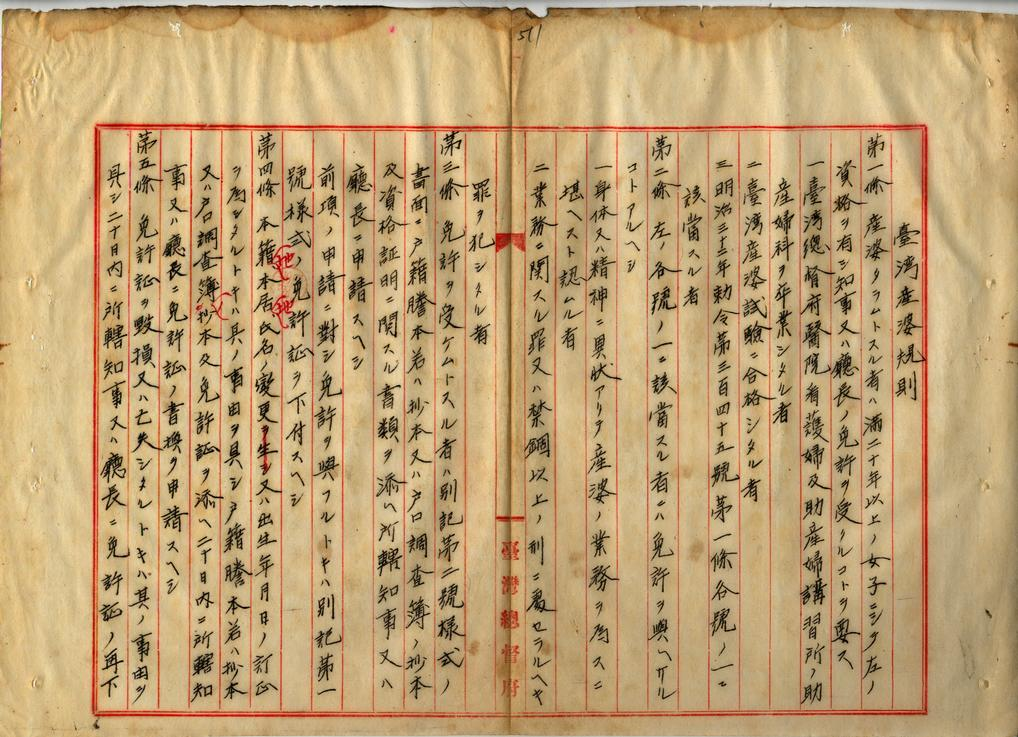 511
臺湾産婆規則
第一條 産婆タラムトスル者ハ満二十年以上ノ女子ニシテ左ノ
資格ヲ有シ知事又ハ廳長ノ免許ヲ受クルコトヲ要ス
一臺湾總督府醫院看護婦及助産婦講習所ノ助
産婦科ヲ卒業シタル者
二臺湾産婆試驗ニ合格シタル者
三明治三十二年勅令第三百四十五號第一條各號ノ一ニ
該當スル者
第二條 左ノ各號ノ一ニ該當スル者ニハ免許ヲ與ヘサル
コトアルヘシ
一身体又ハ精神ニ異狀アリテ産婆ノ業務ヲ為スニ
堪ヘスト認ムル者
二業務ニ関スル罪又ハ禁錮以上ノ刑ニ處セラルヘキ
臺灣總督府
罪ヲ犯シタル者
第三條 免許ヲ受ケムトスル者ハ別記第二號様式ノ
書面ニ戸籍謄本若ハ抄本又ハ戸口調査簿ノ抄本
及資格証明ニ関スル書類ヲ添ヘ所轄知事又ハ
廳長ニ申請スヘシ
前項ノ申請ニ對シ免許ヲ與フルトキハ別記第一
號様式ノ免許証ヲ下付スヘシ
第四條 本籍本居氏名ノ變更ヲ生シ又ハ出生年月日ノ訂正
ヲ為シタルトキハ其ノ事由ヲ具シ戸籍謄本若ハ抄本
又ハ戸口調査簿抄本及免許証ヲ添ヘ二十日内ニ所轄知
事又ハ廳長ニ免許証ノ書換ヲ申請スヘシ
第五條 免許証ヲ毀損又ハ亡失シタルトキハ其ノ事由ヲ
具シ二十日内ニ所轄知事又ハ廳長ニ免許証ノ再下